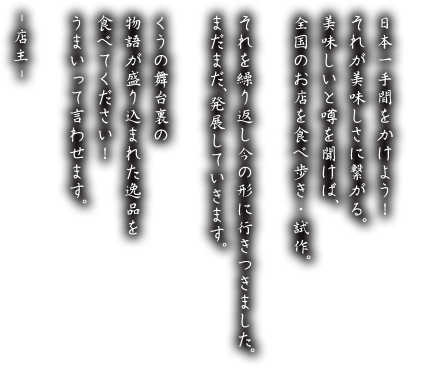 日本一手間をかけよう！
それが美味しさに繋がる。
美味しいと噂を聞けば、
全国のお店を食べ歩き・試作。
それを繰り返し今の形に行きつきました。
まだまだ、発展していきます。
くうの舞台裏の
物語が盛り込まれた逸品を
食べてください！
うまいって言わせます。
-店主-